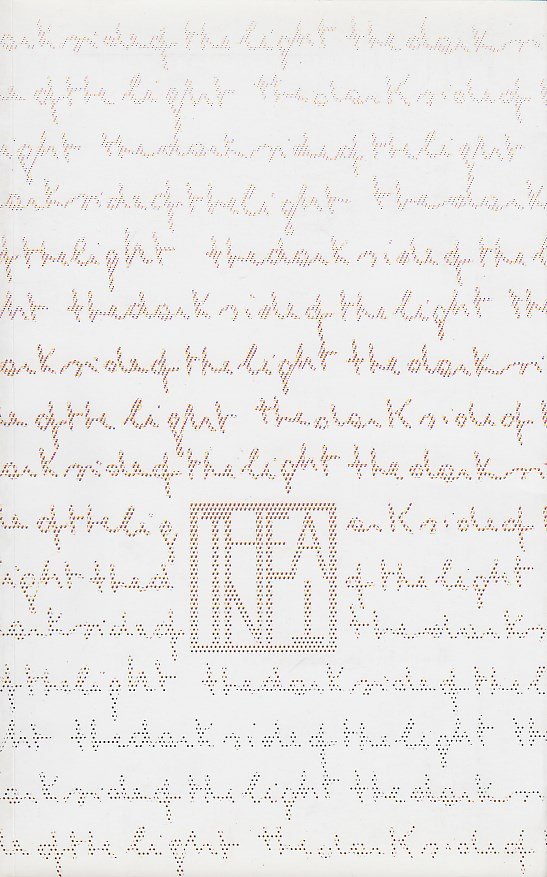 ark side of the light the dark si
e of the light the dark side of t
ight the dark side of the light
ark side of the light the dark
f the light the dark side of the l
ht the dark side of the light th
ark side of the light the dark si
e of the light the dark side of t
ark side of the light the dark si
e of the lig ark side of t
ight the d of the light
ark side of the dark s
f the light the dark side of the l
ht the dark side of the light th
ark side of the light the dark si
e of the light the dark side of